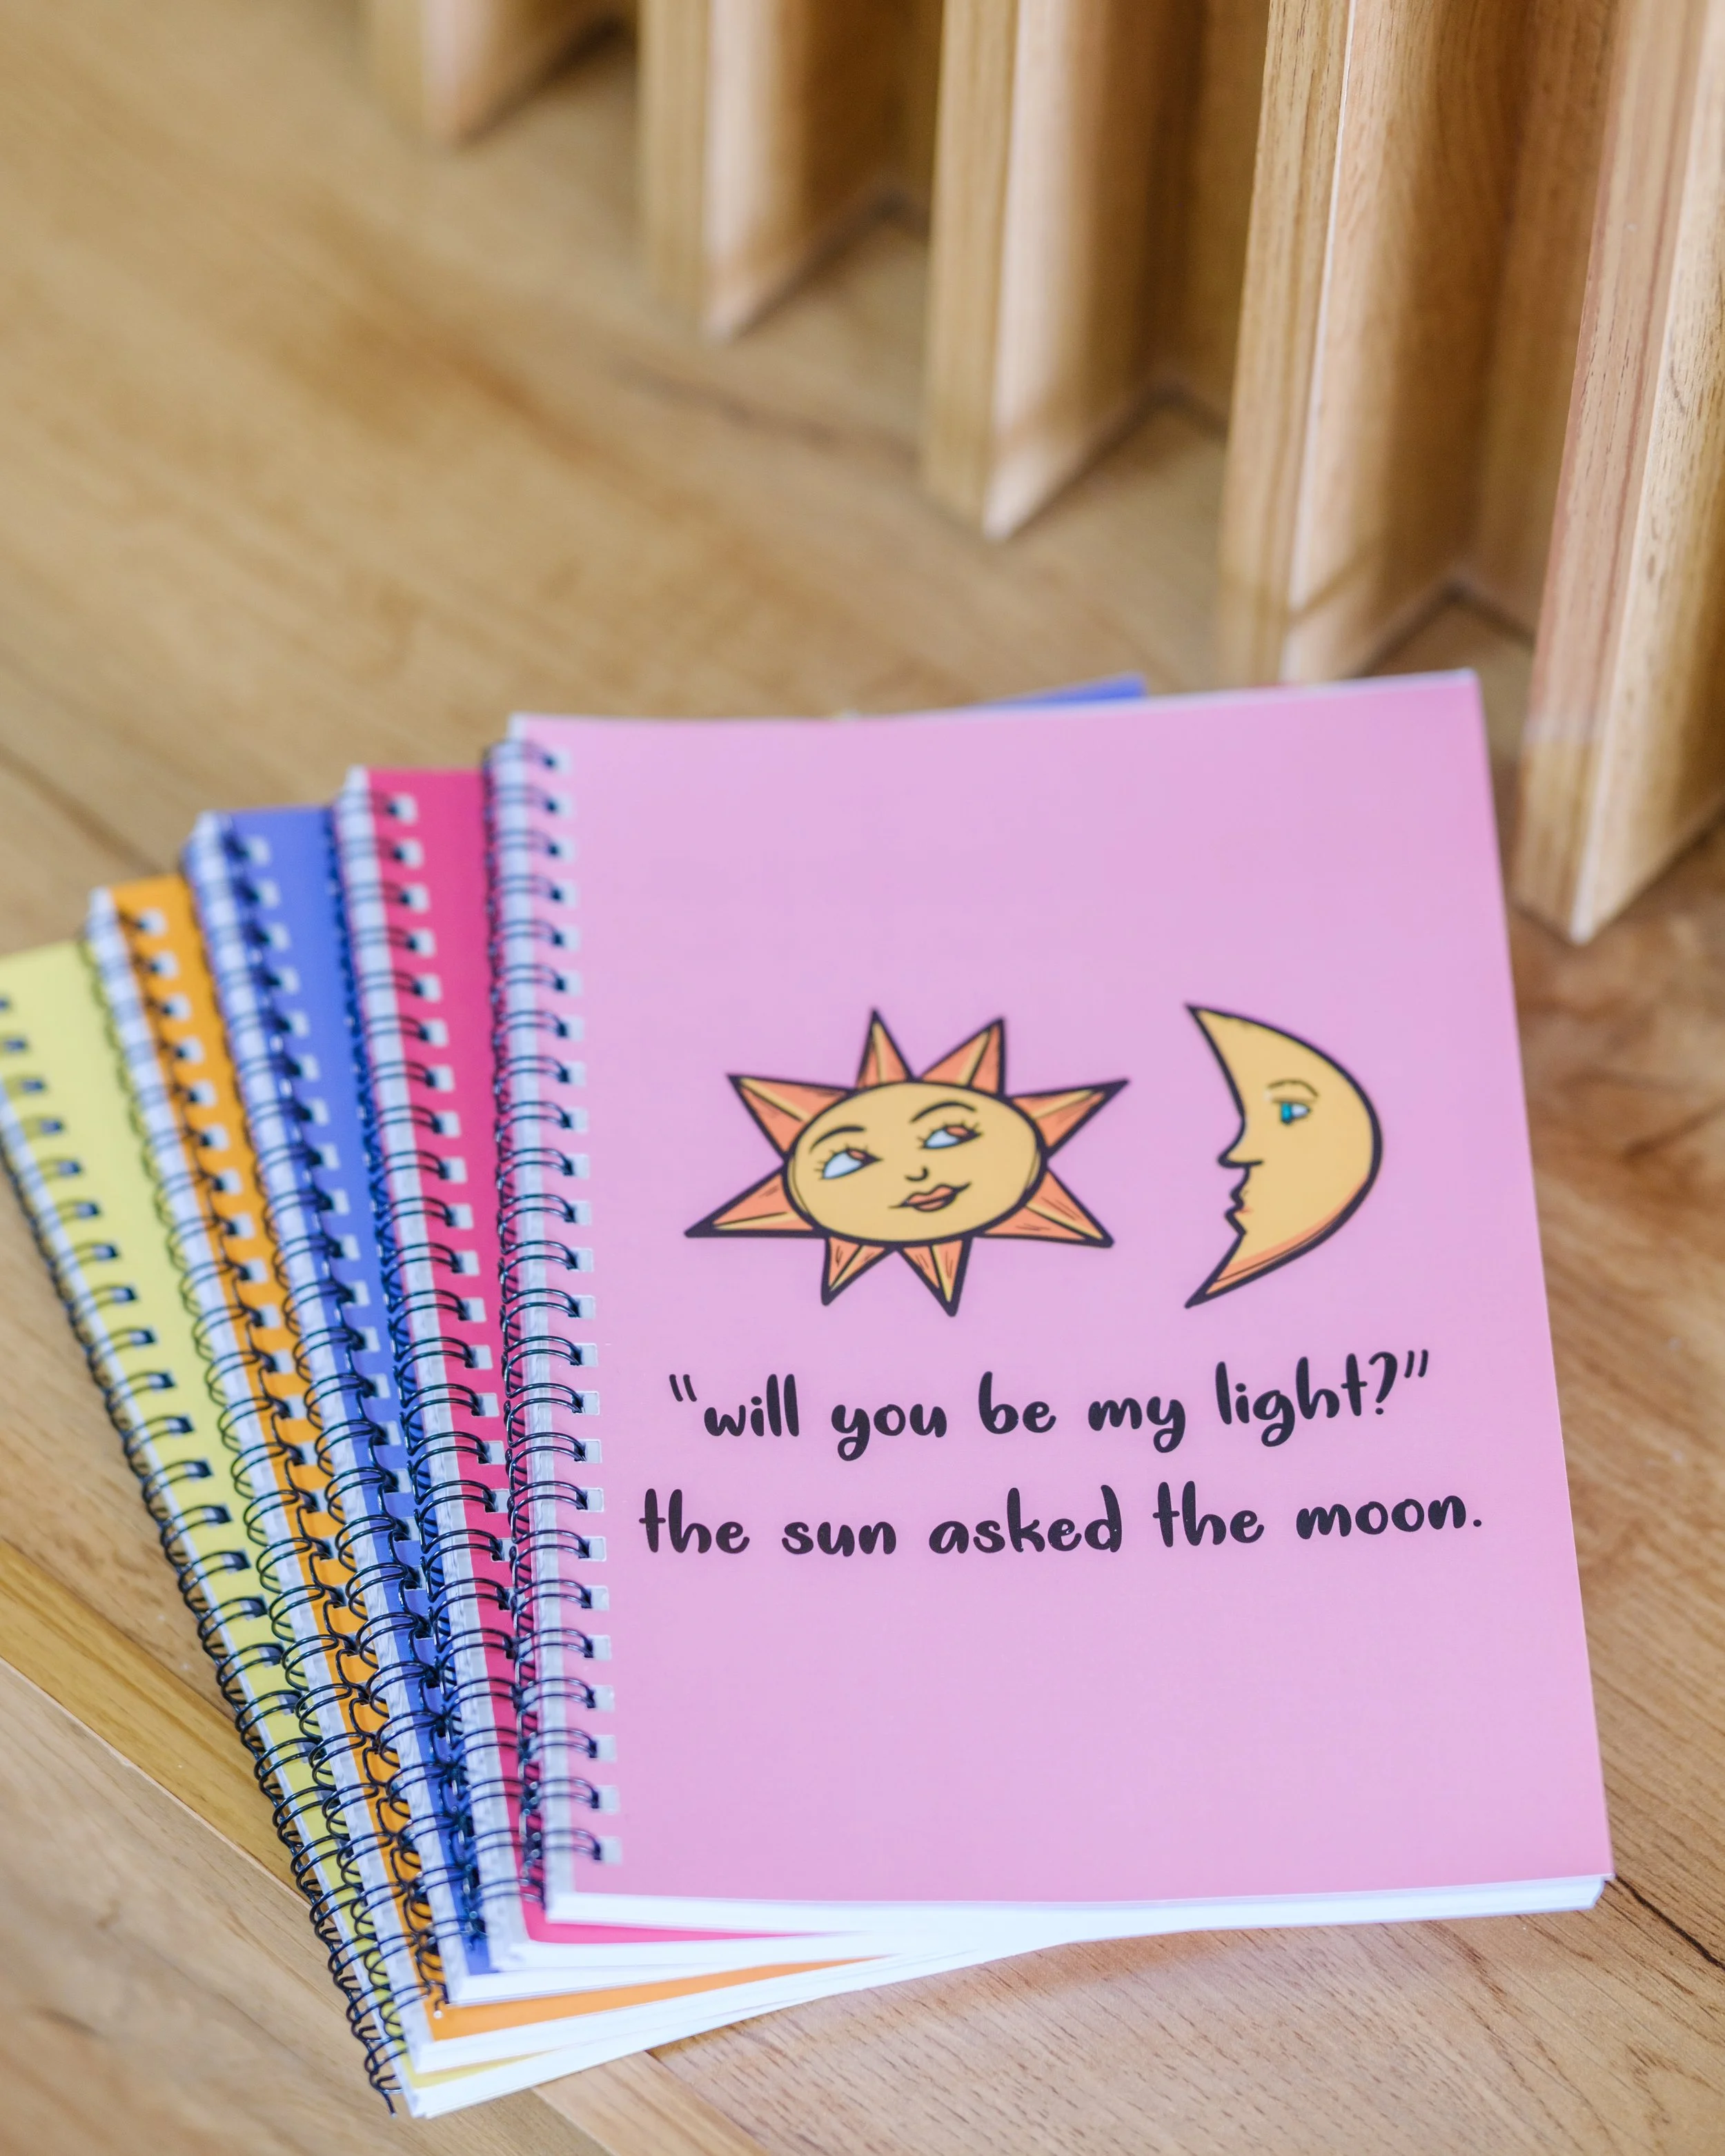 "will you be my light?"
the sun asked the moon.